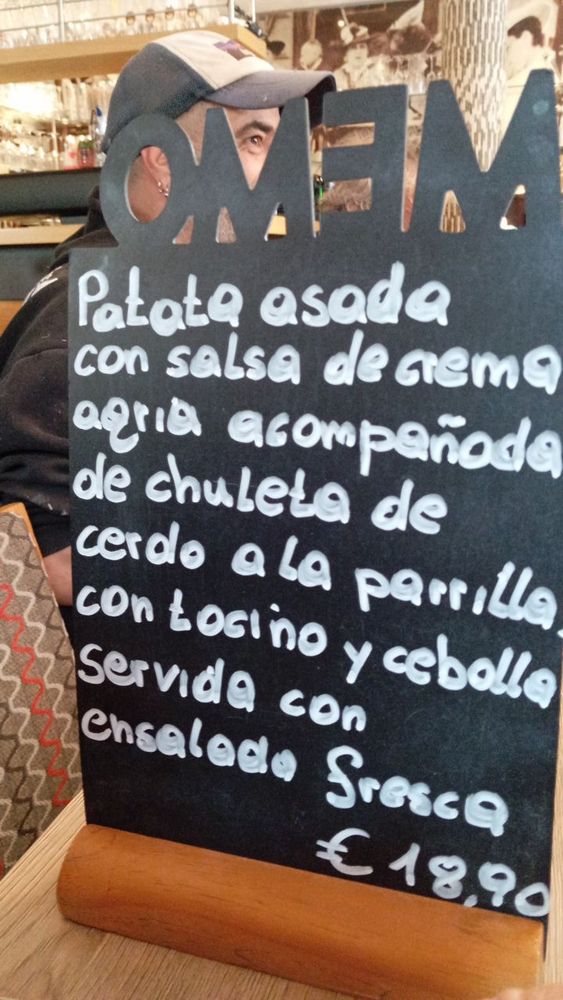 MEMO
Patata asada
con salsa de crema
agria acompañada
de chuleta de
cerdo a la parrilla.
con tocino y cebolla
servida con
ensalada fresca
€ 18,90